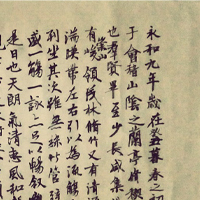 永和九年歲在癸丑暮春之初
于會稽山陰之蘭亭脩禊
也羣賢畢至少長咸集
崇山
有峻領茂林脩竹又有清
湍暎帶左右引以為流觴
列坐其次雖無絲竹管
盛一觴一詠亦足以暢敘
是日也天朗氣清惠風和